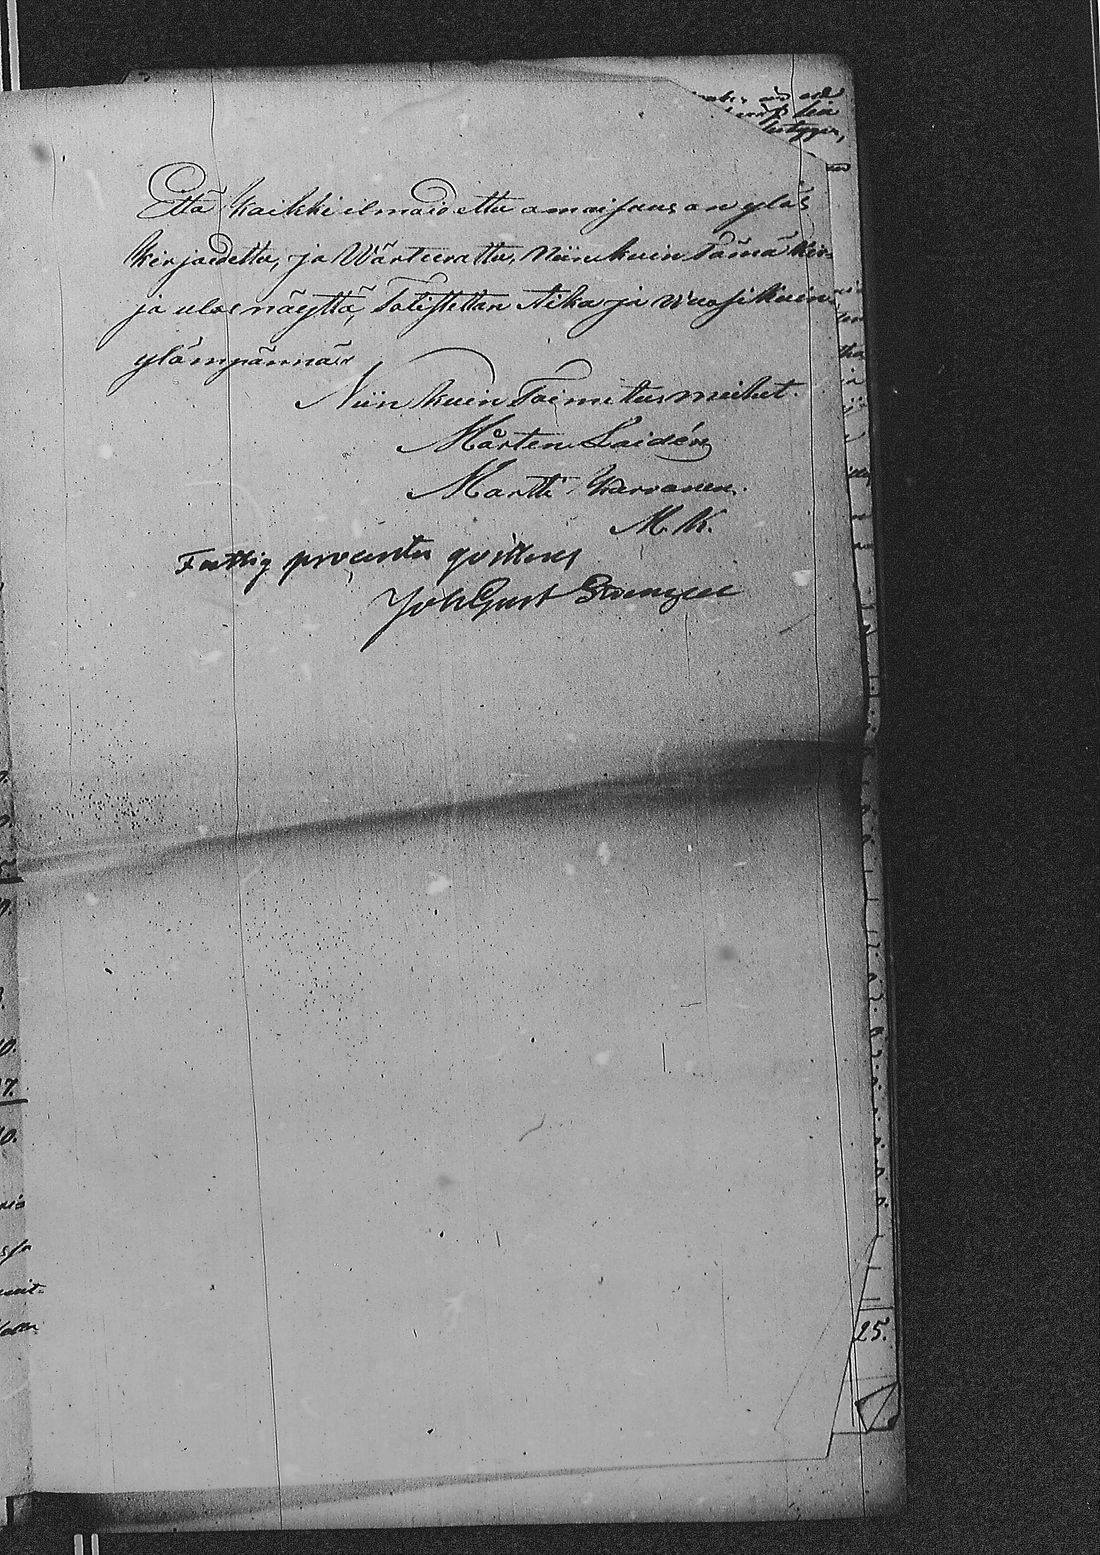 Että kaikki ilmoidettu omaisuus on ylös
kirjoidettu, ja Wärteerattu, Niinkuin Tämä kir-
ja ulos näyttä, Totistettan Aika ja vuosi kuin
ylämpännä
Niin kuin Toimitus miehet.
Mårten Loidén
Martti Karvonen.
M. K.
Fattig procenten qvitteras
Joh Gust
25.